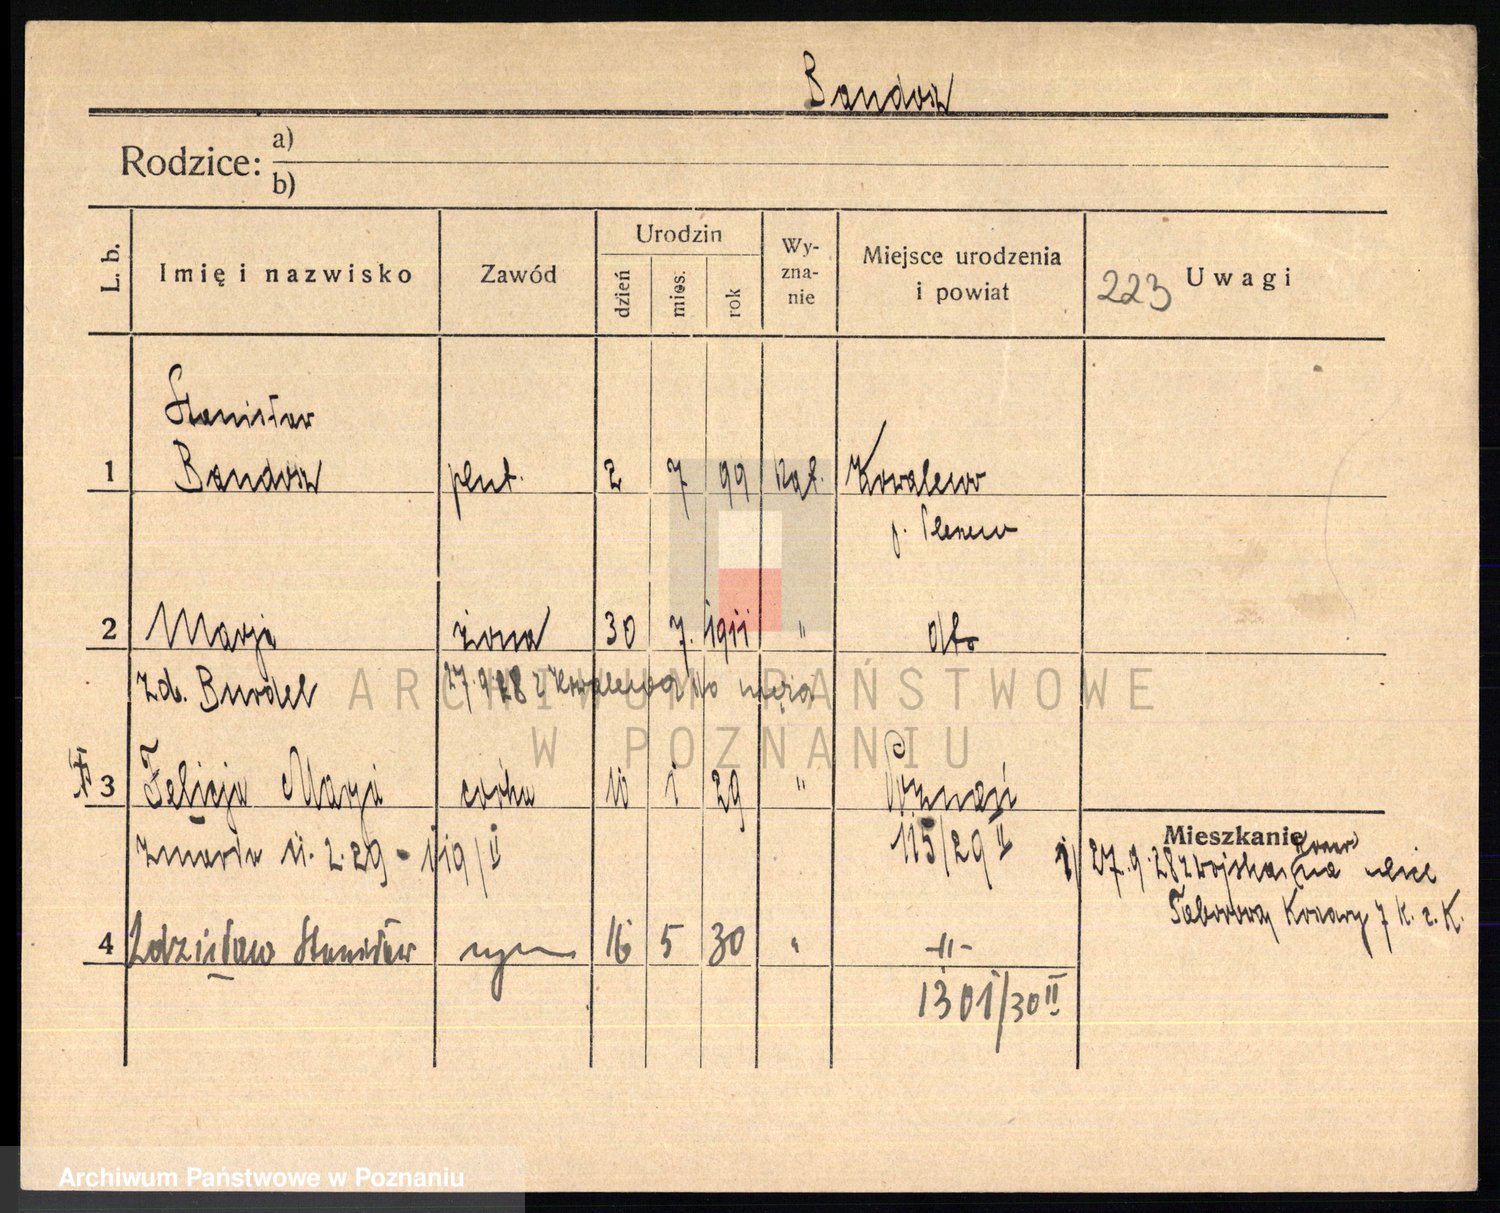 Bandosz
Rodzice: a)
b)
L. b.
Imię i nazwisko
Zawód
Urodzin
dzień
mies.
rok
Wy-
zna-
nie
Miejsce urodzenia
i powiat
223 Uwagi
Stanisław
1 Bandosz plut. 2 7 99 kat. Kowalewo
p. Pleszew
2 Marja żona 30 7. 1911 " dto
zd. Burdel 27.9.28 z Kowalewa do męża
3 Felicja Marja córka 10 1 29 " Poznań
zmarła 11.2.29 - 119/II 115/29 II
Mieszkanie
1/ 27.9.28 z wojska na ulice
Taborowa Koszary 7 K. s. K.
4 Zdzisław Stanisław syn 16 5 30 " -"-
1301/30 II
ARCHIWUM PAŃSTWOWE
W POZNANIU
Archiwum Państwowe w Poznaniu